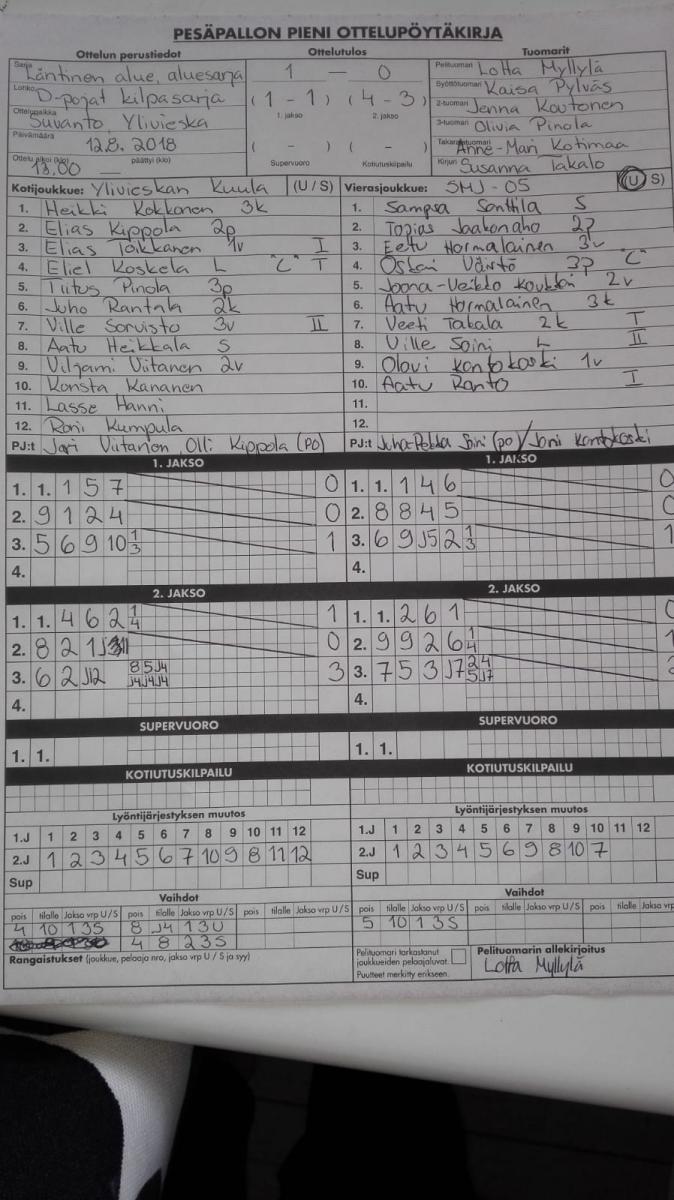 PESÄPALLON PIENI OTTELUPÖYTÄKIRJA
Ottelun perustiedot Ottelutulos Tuomarit
Sarja Läntinen alue, aluesarja 1 — 0 Pelituomari Lotta Myllylä
Lohko D-pojat kilpasarja (1 - 1) (4 - 3) Syöttötuomari Kaisa Pylväs
Ottelupaikka Suvanto, Ylivieska 1. jakso 2. jakso 2-tuomari Jenna Koutonen
3-tuomari Olivia Pinola
Päivämäärä 12.8. 2018 ( - ) ( - ) Takarajatuomari Anne-Mari Kotimaa
Ottelu alkoi (klo) 13.00 päättyi (klo) — Supervuoro Kotiutuskilpailu Kirjuri Susanna Takalo
Kotijoukkue: Ylivieskan Kuula (U / S) Vierasjoukkue: SMJ - 05 (U / S)
1. Heikki Kokkonen 3k 1. Sampsa Santtila S
2. Elias Kippola 2p 2. Topias Jaakonaho 2p
3. Elias Toikkanen 1v I 3. Eetu Hormalainen 3v
4. Eliel Koskela L "C" T 4. Oskari Väntö 3p "C"
5. Tiitus Pinola 3p 5. Joona-Veikko 2v
6. Juho Rantala 2k 6. Aatu Hormalainen 3k
7. Ville Sorvisto 3v II 7. Veeti Takala 2k T
8. Aatu Heikkala S 8. Ville Soini L II
9. Viljami Viitanen 2v 9. Olavi Kontokoski 1v
10. Konsta Kananen 10. Aatu Ranto I
11. Lasse Hanni 11.
12. Roni Kumpula 12.
PJ:t Jari Viitanen, Olli Kippola (PO) PJ:t Juha-Pekka Soini (po) / Joni Kontokoski
1. JAKSO 1. JAKSO
1. 1. 1 5 7 0 1. 1. 1 4 6 0
2. 9 1 2 4 0 2. 8 8 4 5 0
3. 5 6 9 10 1/3 1 3. 6 9 J5 2 1/3 1
4. 4.
2. JAKSO 2. JAKSO
1. 1. 4 6 2 1/4 1 1. 1. 2 6 1 0
2. 8 2 1 0 2. 9 9 2 6 1/4 1
3. 6 2 J12 8 5 J4 J4 J4 J4 3 3. 7 5 3 J7 2 4 5 J7
4. 4.
SUPERVUORO SUPERVUORO
1. 1. 1. 1.
KOTIUTUSKILPAILU KOTIUTUSKILPAILU
Lyöntijärjestyksen muutos Lyöntijärjestyksen muutos
1.J 1 2 3 4 5 6 7 8 9 10 11 12 1.J 1 2 3 4 5 6 7 8 9 10 11 12
2.J 1 2 3 4 5 6 7 10 9 8 11 12 2.J 1 2 3 4 5 6 9 8 10 7
Sup Sup
Vaihdot Vaihdot
pois tilalle Jakso vrp U / S pois tilalle Jakso vrp U / S pois tilalle Jakso vrp U / S pois tilalle Jakso vrp U / S pois tilalle Jakso vrp U / S pois tilalle Jakso vrp U
4 10 1 3 S 8 J4 1 3 U 5 10 1 3 S
4 8 2 3 S
Rangaistukset (joukkue, pelaaja nro, jakso vrp U / S ja syy) Pelituomari tarkastanut joukkueiden pelaajaluvat. Pelituomarin allekirjoitus
Puutteet merkitty erikseen. Lotta Myllylä